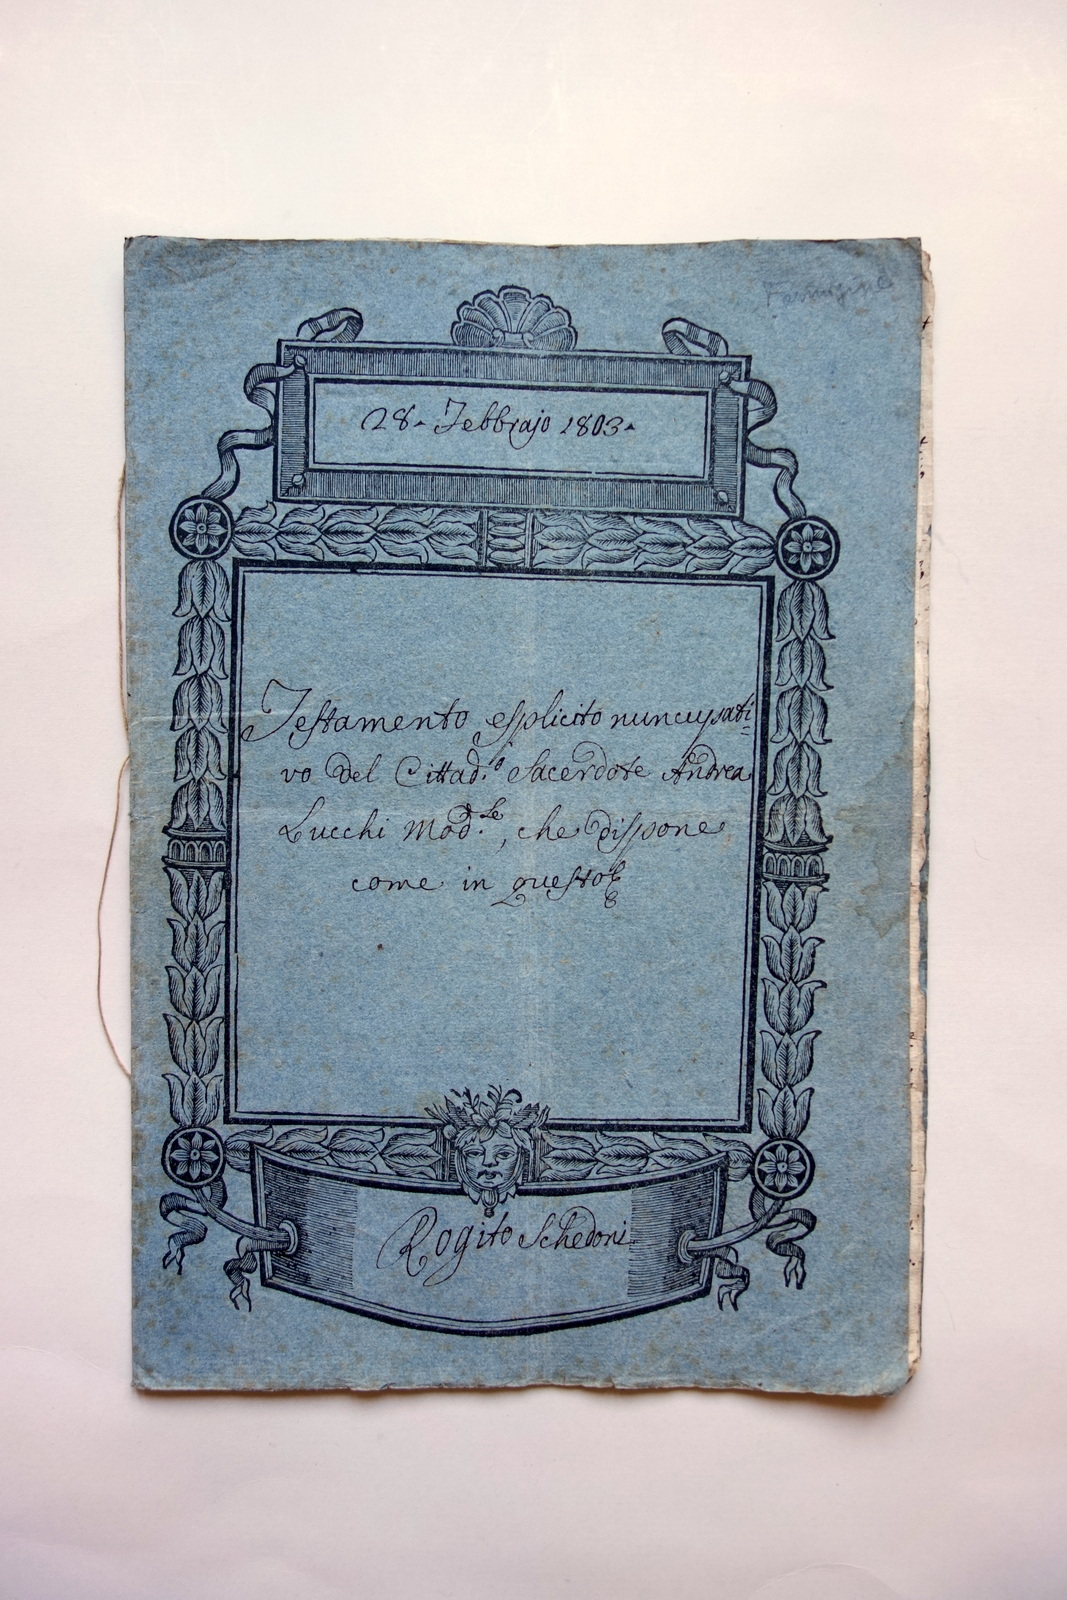 28. Febbrajo 1803.
Testamento esplicito nuncupati=
vo del Cittad.º Sacerdote Andrea
Lucchi Mod.se, che dispone
come in questo
Rogito Schedoni